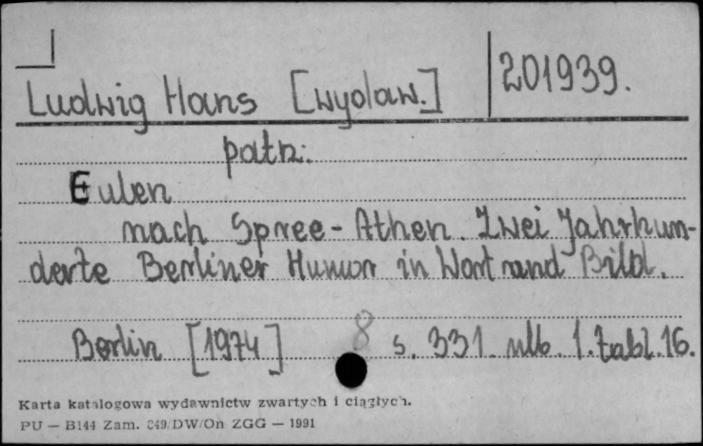 Ludwig Hans [wydaw.] 201939.
patrz:
Eulen
nach Spree-Athen. Zwei Jahrhun-
derte Berliner Humor in Wort und Bild.
Berlin [1974] 8 s. 331. nlb. 1. tabl. 16.
Karta katalogowa wydawnictw zwartych i ciągłych.
PU — B144 Zam. 049/DW/On ZGG — 1991